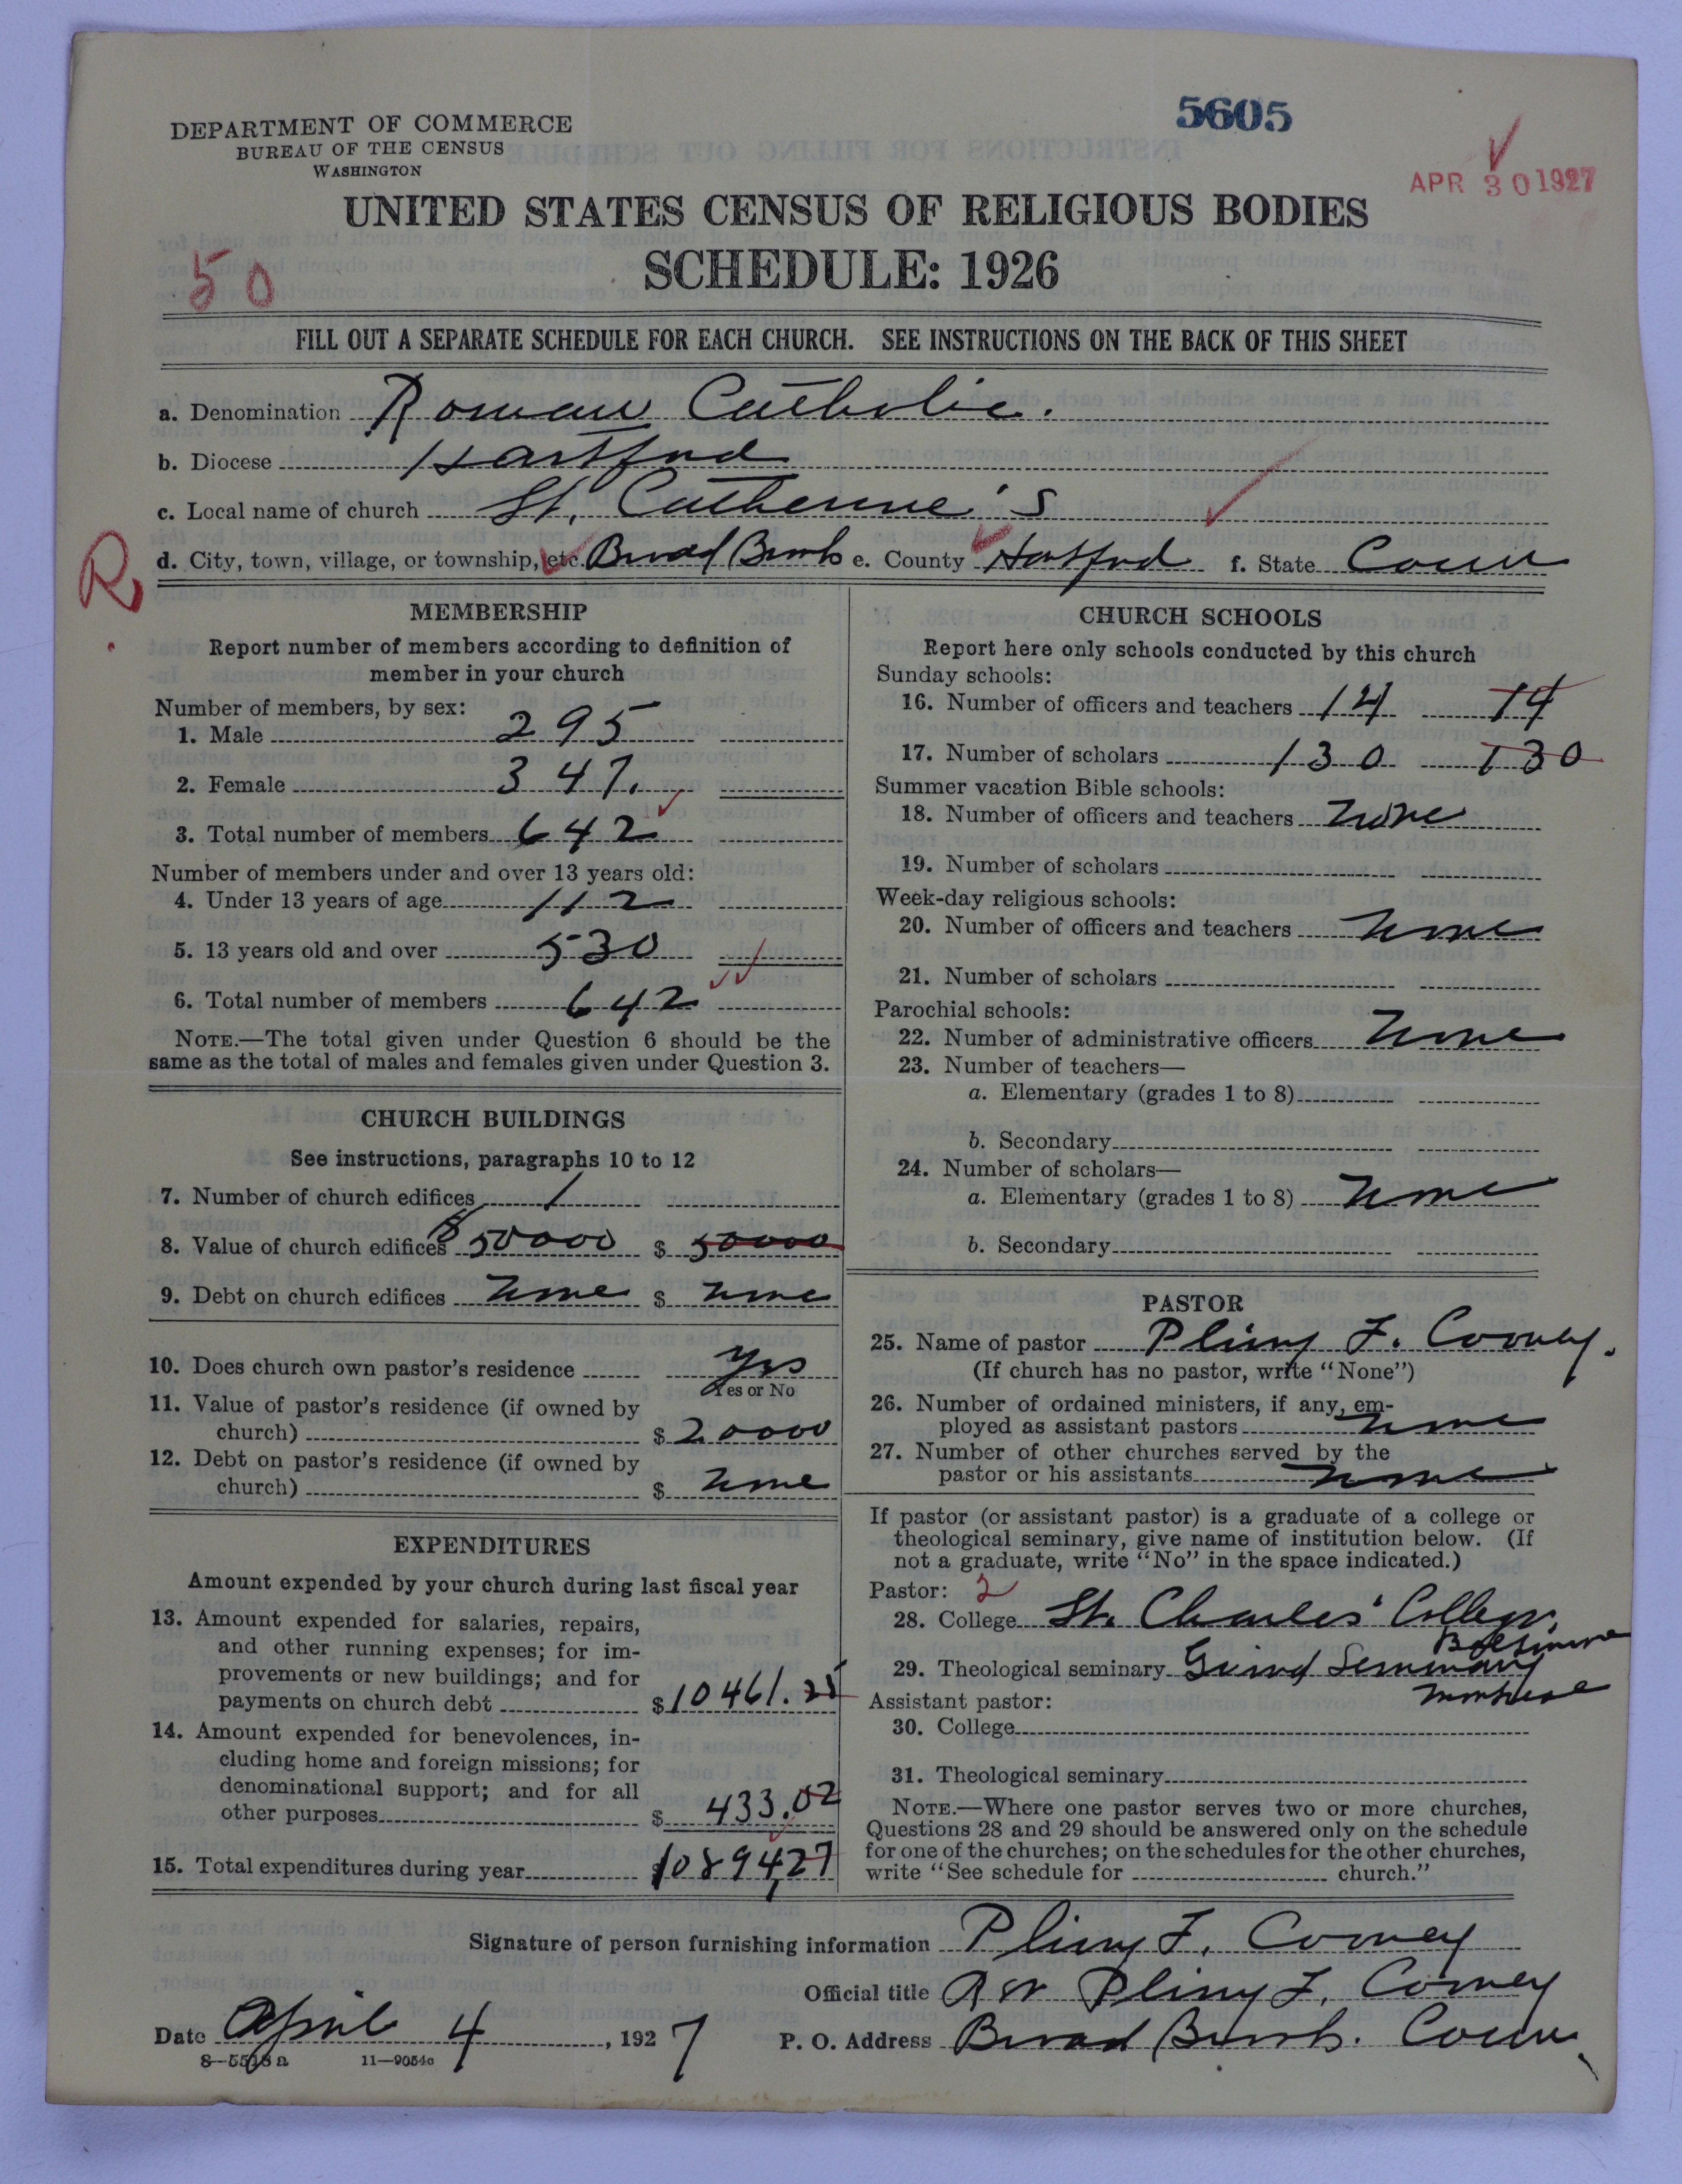 5605
DEPARTMENT OF COMMERCE
BUREAU OF THE CENSUS
WASHINGTON
APR 30 1927
UNITED STATES CENSUS OF RELIGIOUS BODIES
SCHEDULE: 1926
50
FILL OUT A SEPARATE SCHEDULE FOR EACH CHURCH. SEE INSTRUCTIONS ON THE BACK OF THIS SHEET
a. Denomination Roman Catholic.
b. Diocese Hartford
c. Local name of church St. Catherine's
R
d. City, town, village, or township, etc. Broad Brook e. County Hartford f. State Conn
MEMBERSHIP
Report number of members according to definition of
member in your church
Number of members, by sex:
1. Male 295
2. Female 347.
3. Total number of members 642
Number of members under and over 13 years old:
4. Under 13 years of age 112
5. 13 years old and over 530
6. Total number of members 642
NOTE.—The total given under Question 6 should be the
same as the total of males and females given under Question 3.
CHURCH BUILDINGS
See instructions, paragraphs 10 to 12
7. Number of church edifices 1
8. Value of church edifices $50000 $ 50000
9. Debt on church edifices none $ none
10. Does church own pastor's residence yes
Yes or No
11. Value of pastor's residence (if owned by
church) $ 20000
12. Debt on pastor's residence (if owned by
church) $ none
EXPENDITURES
Amount expended by your church during last fiscal year
13. Amount expended for salaries, repairs,
and other running expenses; for im-
provements or new buildings; and for
payments on church debt $10461.25
14. Amount expended for benevolences, in-
cluding home and foreign missions; for
denominational support; and for all
other purposes $ 433.02
15. Total expenditures during year $10894,27
CHURCH SCHOOLS
Report here only schools conducted by this church
Sunday schools:
16. Number of officers and teachers 14 14
17. Number of scholars 130 130
Summer vacation Bible schools:
18. Number of officers and teachers none
19. Number of scholars
Week-day religious schools:
20. Number of officers and teachers none
21. Number of scholars
Parochial schools:
22. Number of administrative officers none
23. Number of teachers—
a. Elementary (grades 1 to 8)
b. Secondary
24. Number of scholars—
a. Elementary (grades 1 to 8) none
b. Secondary
PASTOR
25. Name of pastor Pliny F. Cooney.
(If church has no pastor, write "None")
26. Number of ordained ministers, if any, em-
ployed as assistant pastors none
27. Number of other churches served by the
pastor or his assistants none
If pastor (or assistant pastor) is a graduate of a college or
theological seminary, give name of institution below. (If
not a graduate, write "No" in the space indicated.)
Pastor: 2
28. College St. Charles' College,
Baltimore
29. Theological seminary Grand Seminary
Montreal
Assistant pastor:
30. College
31. Theological seminary
NOTE.—Where one pastor serves two or more churches,
Questions 28 and 29 should be answered only on the schedule
for one of the churches; on the schedules for the other churches,
write "See schedule for church."
Signature of person furnishing information Pliny F. Cooney
Official title Rev Pliny F. Cooney
Date April 4, 1927 P. O. Address Broad Brook. Conn.
8—5518a 11—9054a